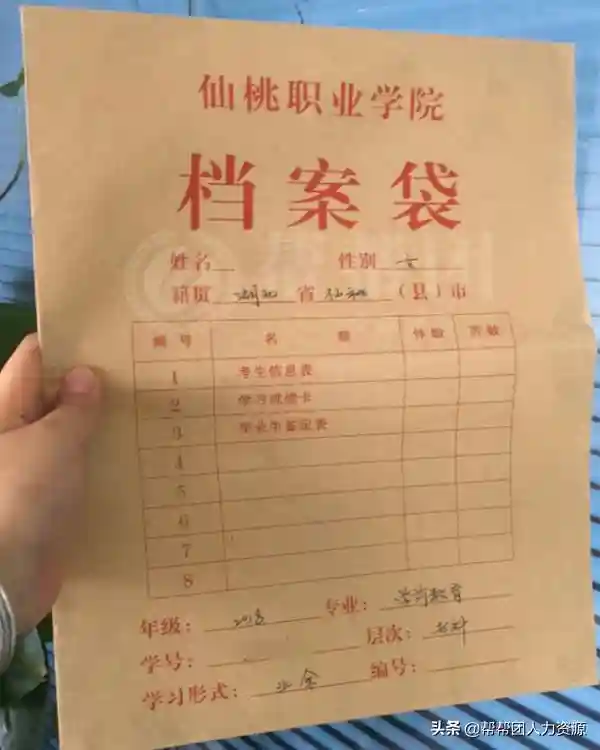 仙桃职业学院
档案袋
姓名 性别 女
籍贯 湖北 省 仙桃 (县)市
编号 名 称 份数 页数
1 考生信息表
2 学习成绩卡
3 毕业生鉴定表
4
5
6
7
8
年级: 2018 专业: 学前教育
学号: 层次: 专科
学习形式: 业余 编号:
头条 @帮帮团人力资源